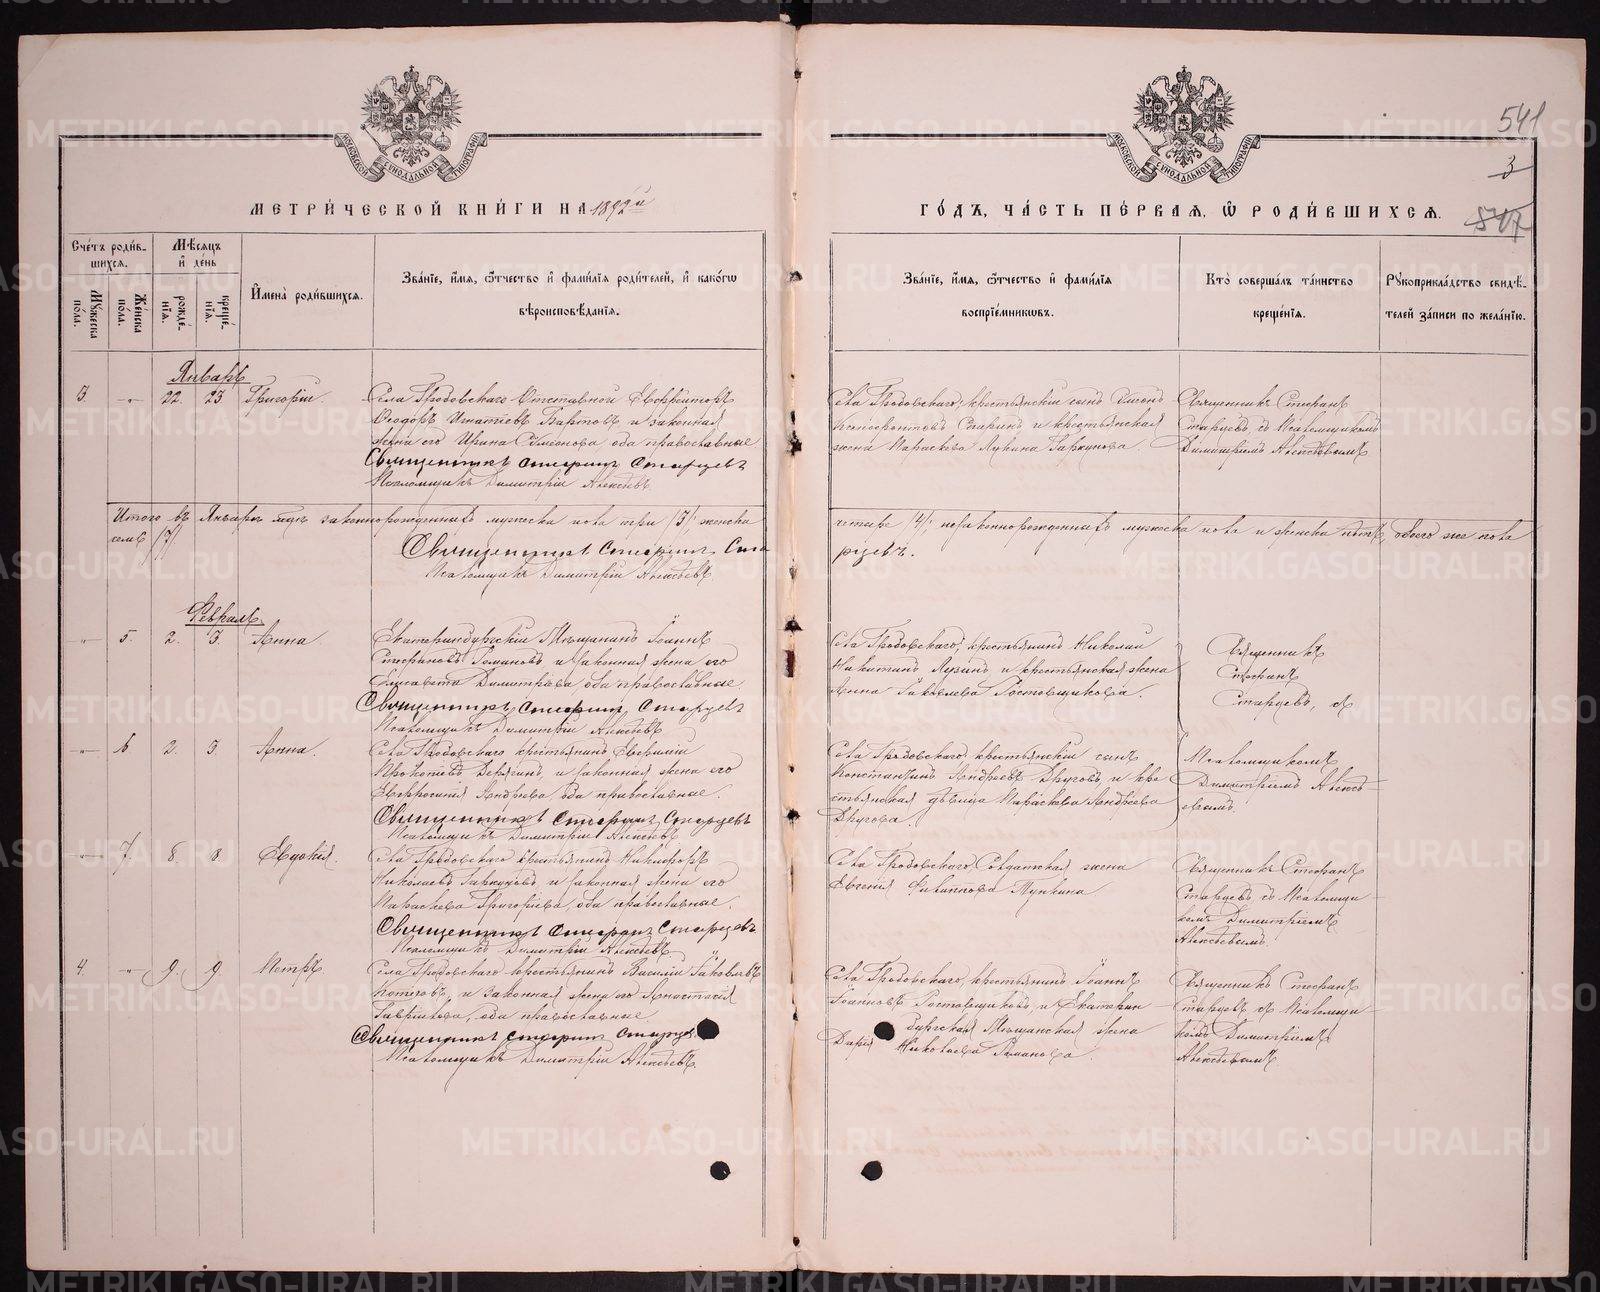 541
3
547
МОСКОВСКОЙ СУНОДАЛЬНОЙ ТИПОГРАФІИ
МОСКОВСКОЙ СУНОДАЛЬНОЙ ТИПОГРАФІИ
МЕТРИ́ЧЕСКОЙ КНИ́ГИ НА 1892й
ГО́ДЪ, ЧА́СТЬ ПЕ́РВАЯ, Ѿ РОДИ́ВШИХСЯ.
Сче́тъ роди́в-
шихся.
Му́жеска по́ла.
Же́нска по́ла.
Мѣ́сяцъ и де́нь
рожде́-нїя.
креще́-нїя.
И҆мена̀ роди́вшихся.
Зва́нїе, и҆́мя, ѻ҆́тчество и҆ фами́лїя роди́телей, и҆ како́гѡ
вѣроисповѣ́данїя.
Зва́нїе, и҆́мя, ѻ҆́тчество и҆ фами́лїя
воспрїе́мниковъ.
Кто̀ соверша́лъ та́инство
креще́нїя.
Рукоприкла́дство свидѣ́-
телей за́писи по жела́нїю.
Январь
3. -„- 22. 23. Григорій.
Села Бродовскаго Отставной Ефрейторъ
Ѳеодоръ Игнатіевъ и законная
жена его Ирина Симеонова, оба православные
Священникъ Стефанъ Старцевъ
Псаломщикъ Димитрій Алексѣевъ
Села Бродовскаго, крестьянскій сынъ
и крестьянская
жена Параскева Лукина Гаркунова.
Священникъ Стефанъ
Старцевъ, съ Псаломщикомъ
Димитріемъ Алексѣевымъ
Итого въ Январѣ законнорожденныхъ мужеска пола три /3/, женска
четыре /4/; незаконнорожденныхъ мужеска пола и женска нѣтъ, обоего же пола
семь /7/
Священникъ Стефанъ Ста
рцевъ.
Псаломщикъ Димитрій Алексѣевъ
Февраль
-„- 5. 2. 3. Анна
Екатеринбургскій Мѣщанинъ Іоаннъ
Стефановъ Романовъ и законная жена его
Елисавета Димитріева, оба православные
Священникъ Стефанъ Старцевъ
Псаломщикъ Димитрій Алексѣевъ
Села Бродовскаго, крестьянинъ Николай
Никитинъ и крестьянская жена
Анна Яковлева Ростовщикова.
Священникъ
Стефанъ
Старцевъ, съ
-„- 6 2. 3. Анна.
Села Бродовскаго крестьянинъ Евфимій
Прокопіевъ и законная жена его
Евфросинія Андреева, оба православные.
Священникъ Стефанъ Старцевъ
Псаломщикъ Димитрій Алексѣевъ
Села Бродовскаго, крестьянскій сынъ
Константинъ Андреевъ и кре
стьянская дѣвица Параскева Андреева
Псаломщикомъ
Димитріемъ Алексѣ-
евымъ.
-„- 7. 8. 8. Евдокія.
Села Бродовскаго крестьянинъ Никифоръ
Николаевъ Гаркуновъ и законная жена его
Параскева Григоріева, оба православные.
Священникъ Стефанъ Старцевъ
Псаломщикъ Димитрій Алексѣевъ
Села Бродовскаго, Солдатская жена
Евгенія Филиппова
Священникъ Стефанъ
Старцевъ съ Псаломщи-
комъ Димитріемъ
Алексѣевымъ.
4. -„- 9. 9. Петръ
Села Бродовскаго крестьянинъ Василій Яковлевъ
и законная жена его Анастасія
Гавріилова, оба православные.
Священникъ Стефанъ Старцев
Псаломщикъ Димитрій Алексѣевъ.
Села Бродовскаго, крестьянинъ Іоаннъ
Іоанновъ Ростовщиковъ, и Екатерин
бургская Мѣщанская жена
Дарія Николаева Романова.
Священникъ Стефанъ
Старцевъ съ Псаломщи-
комъ Димитріемъ
Алексѣевымъ.
METRIKI.GASO-URAL.RU